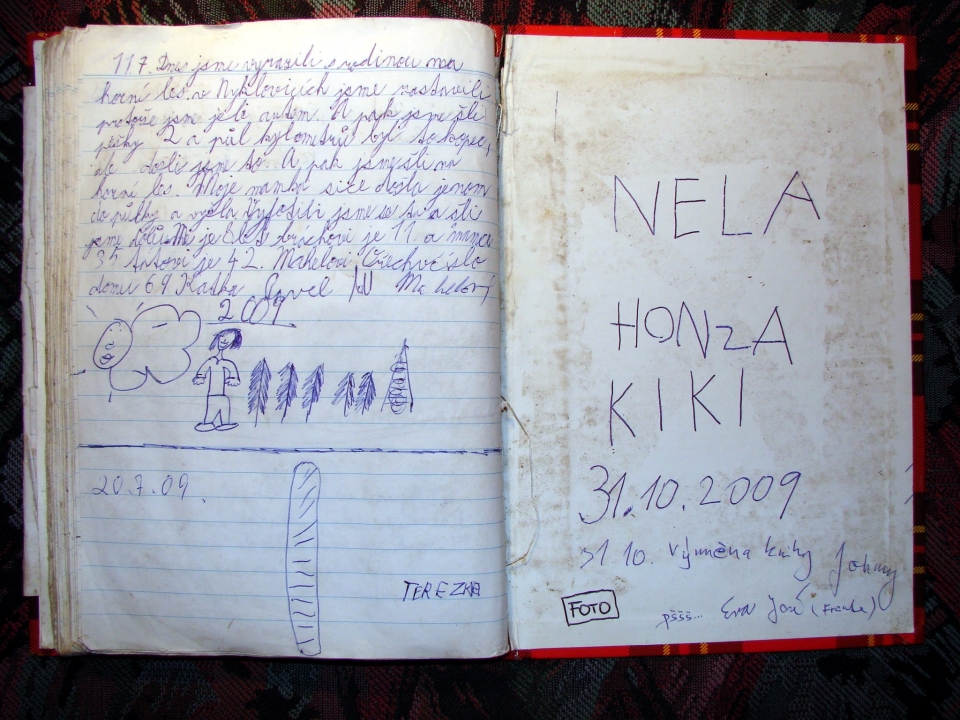 11.7. Dnes jsme vyrazili s rodinou na
horní les. v Nyklovicích jsme zastavili
protože jsme jeli autem. A pak jsme šli
pěšky. 2 a půl kylometrů byl to kopec,
ale došli jsme to. A pak jsme šli na
horní les. Moje mamka sice došla jenom
do půlky a jsme se a šli
jsme dolů. Mě je 8 let bráchovi je 11. a mamce
35 taťovi je 42. číslo
domu 69 Katka Pavel
2009
20.7.09.
TEREZKA
NELA
HONZA
KIKI
31.10.2009
31 10. výměna knihy Johny
FOTO pššš... Eva José (Franta)